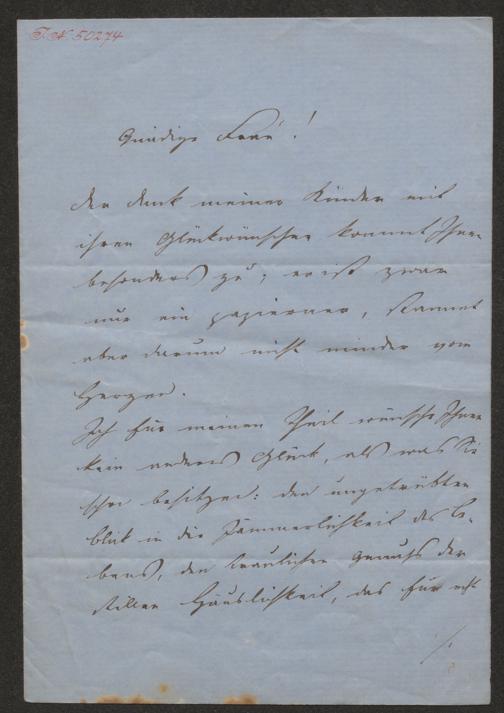 I. N. 50274
Gnädige Frau!
Der Dank meiner Kinder mit
ihren Glückwünschen kommt Ihnen
besonders zu; er ist zwar
nur ein papierner, stammt
aber darum nicht minder vom
Herzen.
Ich für meinen Theil wünsche Ihnen
kein anderes Glück, als was Sie
schon besitzen: den ungetrübten
Blick in die Jämmerlichkeit des Le-
bens, den traulichen Genuß der
stillen Häuslichkeit, das für
./.